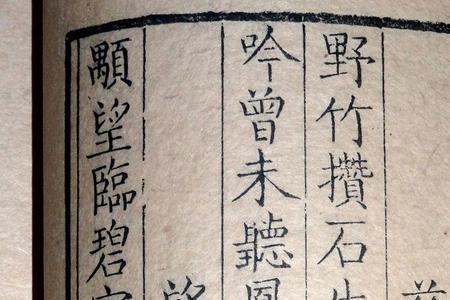 野竹攢石生
吟曾未聽鳳
望
顒望臨碧